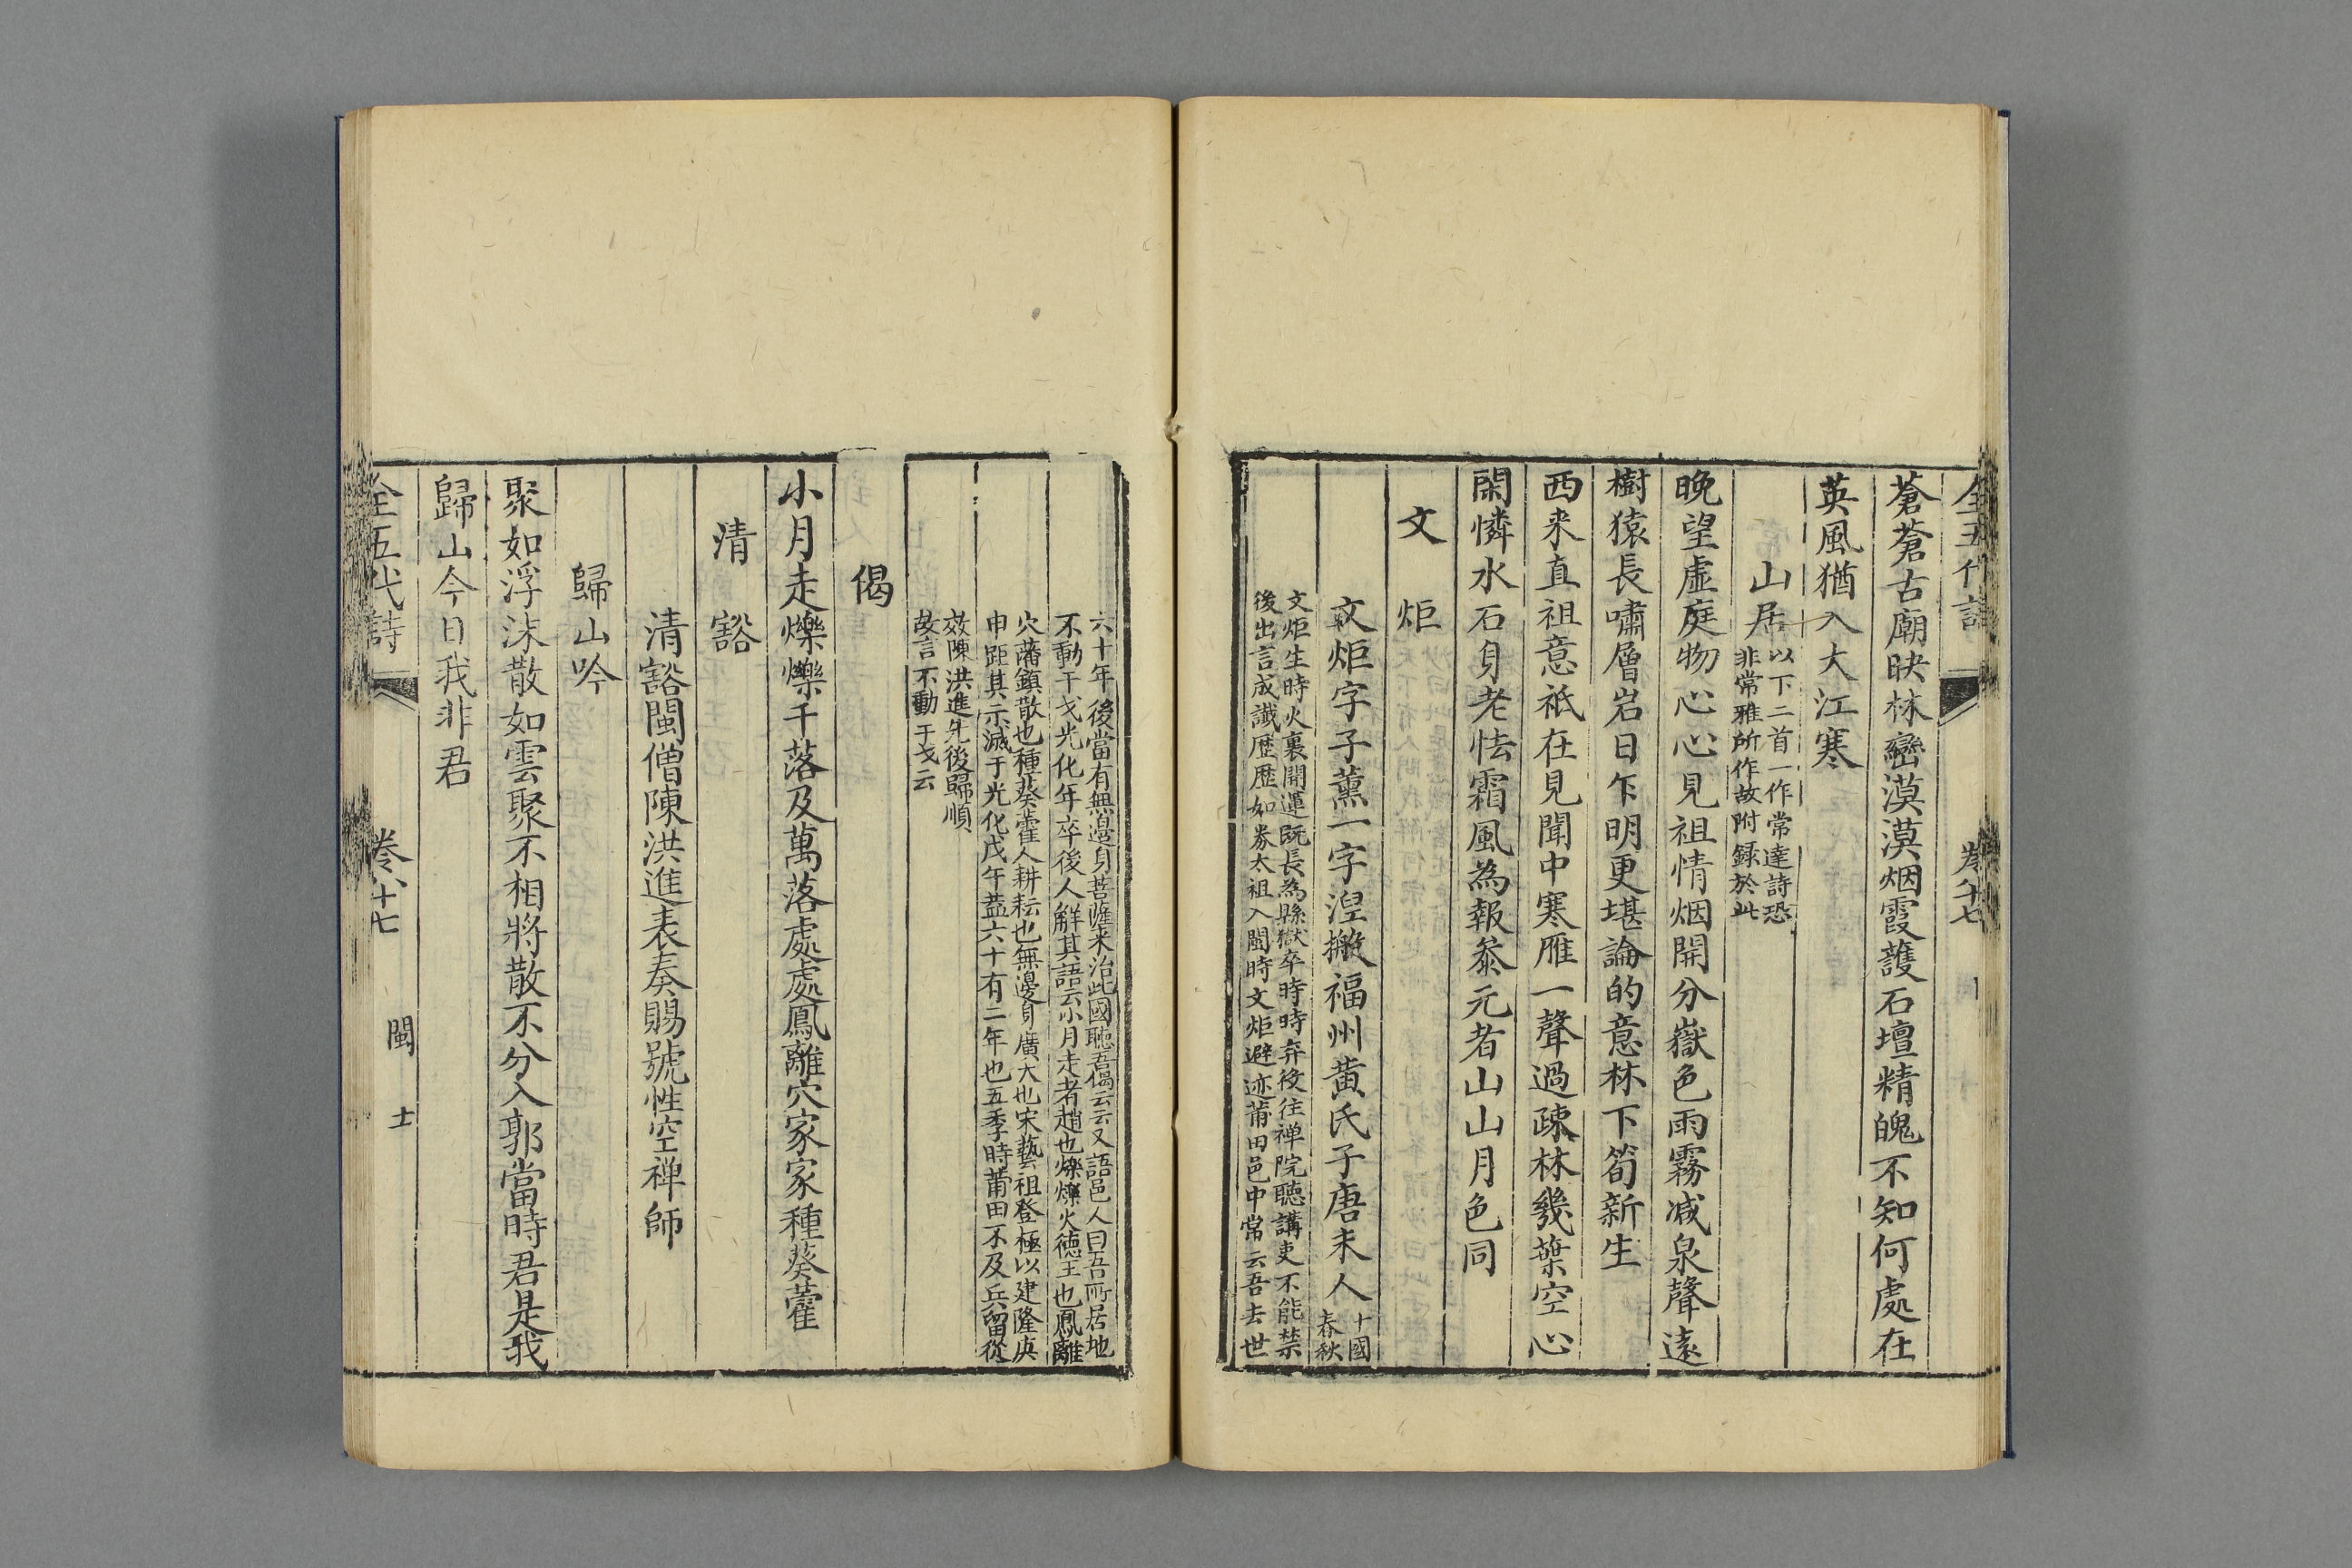 全五代詩 卷八十七
蒼蒼古廟映林巒漠漠烟霞護石壇精魄不知何處在
英風猶入大江寒
山居以下二首一作常達詩恐
非常雅所作故附録於此
晚望虛庭物心心見祖情烟開分嶽色雨霧減泉聲遠
樹猿長嘯層岩日乍明更堪論的意林下筍新生
西来直祖意祇在見聞中寒雁一聲過疎林幾葉空心
閑憐水石身老怯霜風為報叅元者山山月色同
文炬
文炬字子薰一字湼搬福州黃氏子唐末人十國
春秋
文炬生時火裏開運既長為縣獄卒時時弃役往禅院聽講吏不能禁
後出言成讖歴歴如券太祖入閩時文炬避迹莆田邑中常云吾去世
六十年後當有無邉身菩薩来治此國聽吾偈云云又語邑人曰吾所居地
不動干戈光化年卒後人解其語云小月走者趙也爍爍火德王也鳳離
穴藩鎮散也種葵藿人耕耘也無邊身廣大也宋藝祖登極以建隆庚
申距其示滅于光化戊午葢六十有二年也五季時莆田不及兵留從
效陳洪進先後歸順
故言不動干戈云
偈
小月走爍爍千落及萬落處處鳳離穴家家種葵藿
清豁
清豁閩僧陳洪進表奏賜號性空禅師
歸山吟
聚如浮沫散如雲聚不相將散不分入郭當時君是我
歸山今日我非君
全五代詩 卷八十七 閩 十一